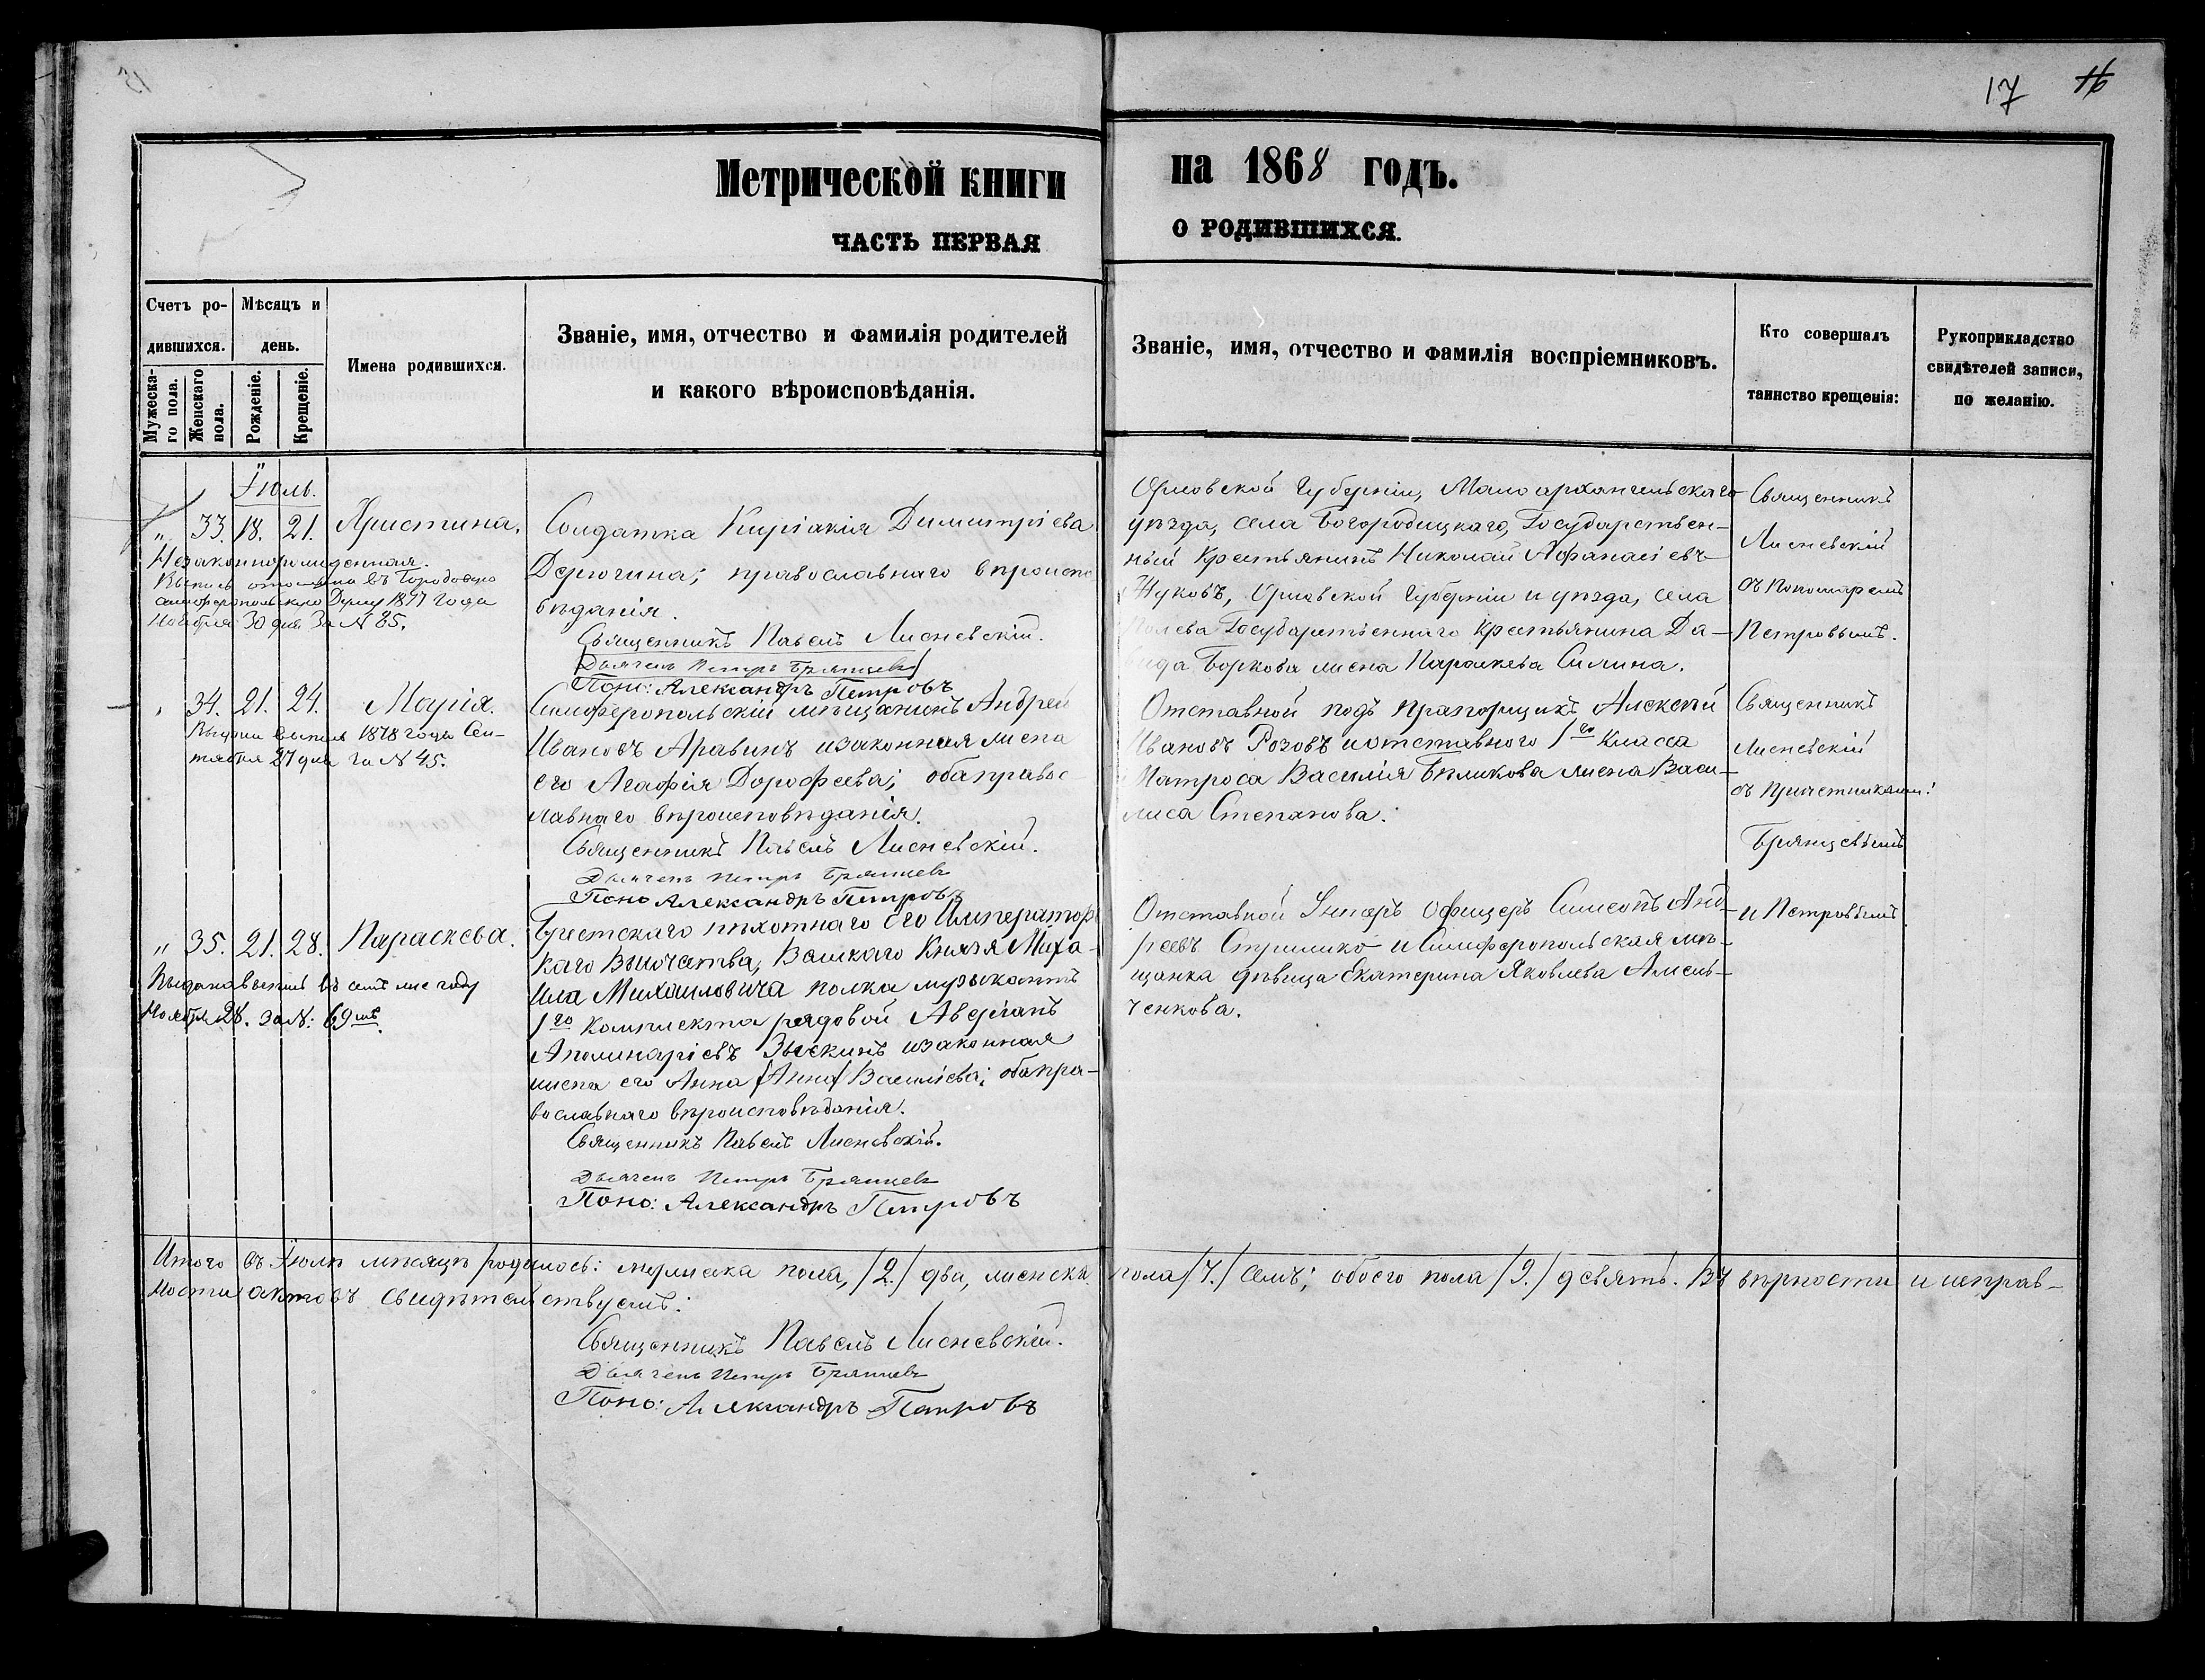 17 16
Метрической книги на 1868 годъ.
ЧАСТЬ ПЕРВАЯ О РОДИВШИХСЯ.
Счетъ ро-
дившихся.
Мужеска-
го пола.
Женскаго
пола.
Мѣсяцъ и
день.
Рожденіе.
Крещеніе.
Имена родившихся.
Званіе, имя, отчество и фамилія родителей
и какого вѣроисповѣданія.
Званіе, имя, отчество и фамилія воспріемниковъ.
Кто совершалъ
таинство крещенія:
Рукоприкладство
свидѣтелей записи,
по желанію.
Іюль.
" 33. 18. 21. Христина.
Незаконнорожденная.
Выпись отослана въ Городскую
Симферопольскую Думу 1877 года
Ноября 30 дня За № 85.
Солдатка Киріакія Димитріева
Дерюгина; православнаго вѣроиспо
вѣданія.
Священникъ Павелъ Лисневскій.
Дьячекъ Петръ Брянцевъ
Поно: Александръ Петровъ
Орловской Губерніи, Малоархангельскаго
уѣзда, села Богородицкаго, Государствен-
ный Крестьянинъ Николай Афанасіевъ
Жуковъ, Орловской Губерніи и уѣзда, села
Государственнаго Крестьянина Да-
вида Боркова жена Параскева Силина.
Священникъ
Лисневскій
съ Пономаремъ
Петровымъ.
" 34. 21. 24. Марія.
Выдана выпись 1878 года Сен-
тября 27 дня за № 45.
Симферопольскій мѣщанинъ Андрей
Ивановъ Аравинъ изаконная жена
его Агафія Дорофеева; оба правос-
лавнаго вѣроисповѣданія.
Священникъ Павелъ Лисневскій.
Дьячекъ Петръ Брянцевъ
Поно Александръ Петровъ
Отставной подъ прапорщикъ Алексѣй
Ивановъ Розовъ и отставного 1го класса
Матроса Василія Бѣликова жена Васи-
лиса Степанова.
Священникъ
Лисневскій
съ Причетниками:
Брянцевымъ
и Петровымъ
" 35. 21. 28. Параскева.
Выдана выпись въ семъ же году
Ноября 28. за №: 69мъ.
Брестскаго пѣхотнаго Его Император
каго Высочества, Великаго Князя Миха-
ила Михаиловича полка музыкантъ
1го комплекта рядовой Аверіанъ
Аполинаріевъ Зыскинъ изаконная
жена его Анна /Анна/ Василіева; оба пра-
вославнаго вѣроисповѣданія.
Священникъ Павелъ Лисневскій.
Дьячекъ Петръ Брянцевъ
Поно: Александръ Петровъ
Отставной Унтеръ Офицеръ Симеонъ Анд-
реевъ Стрижико и Симферопольская мѣ-
щанка дѣвица Екатерина Яковлева Амель-
ченкова.
Итого въ Іюлѣ мѣсяцѣ родилось: мужеска пола, /2./ два, женска пола /7./ семь; обоего пола /9./ девять. Въ вѣрности и исправ-
ности актовъ свидѣтельствуемъ:
Священникъ Павелъ Лисневскій.
Дьячекъ Петръ Брянцевъ
Поно: Александръ Петровъ